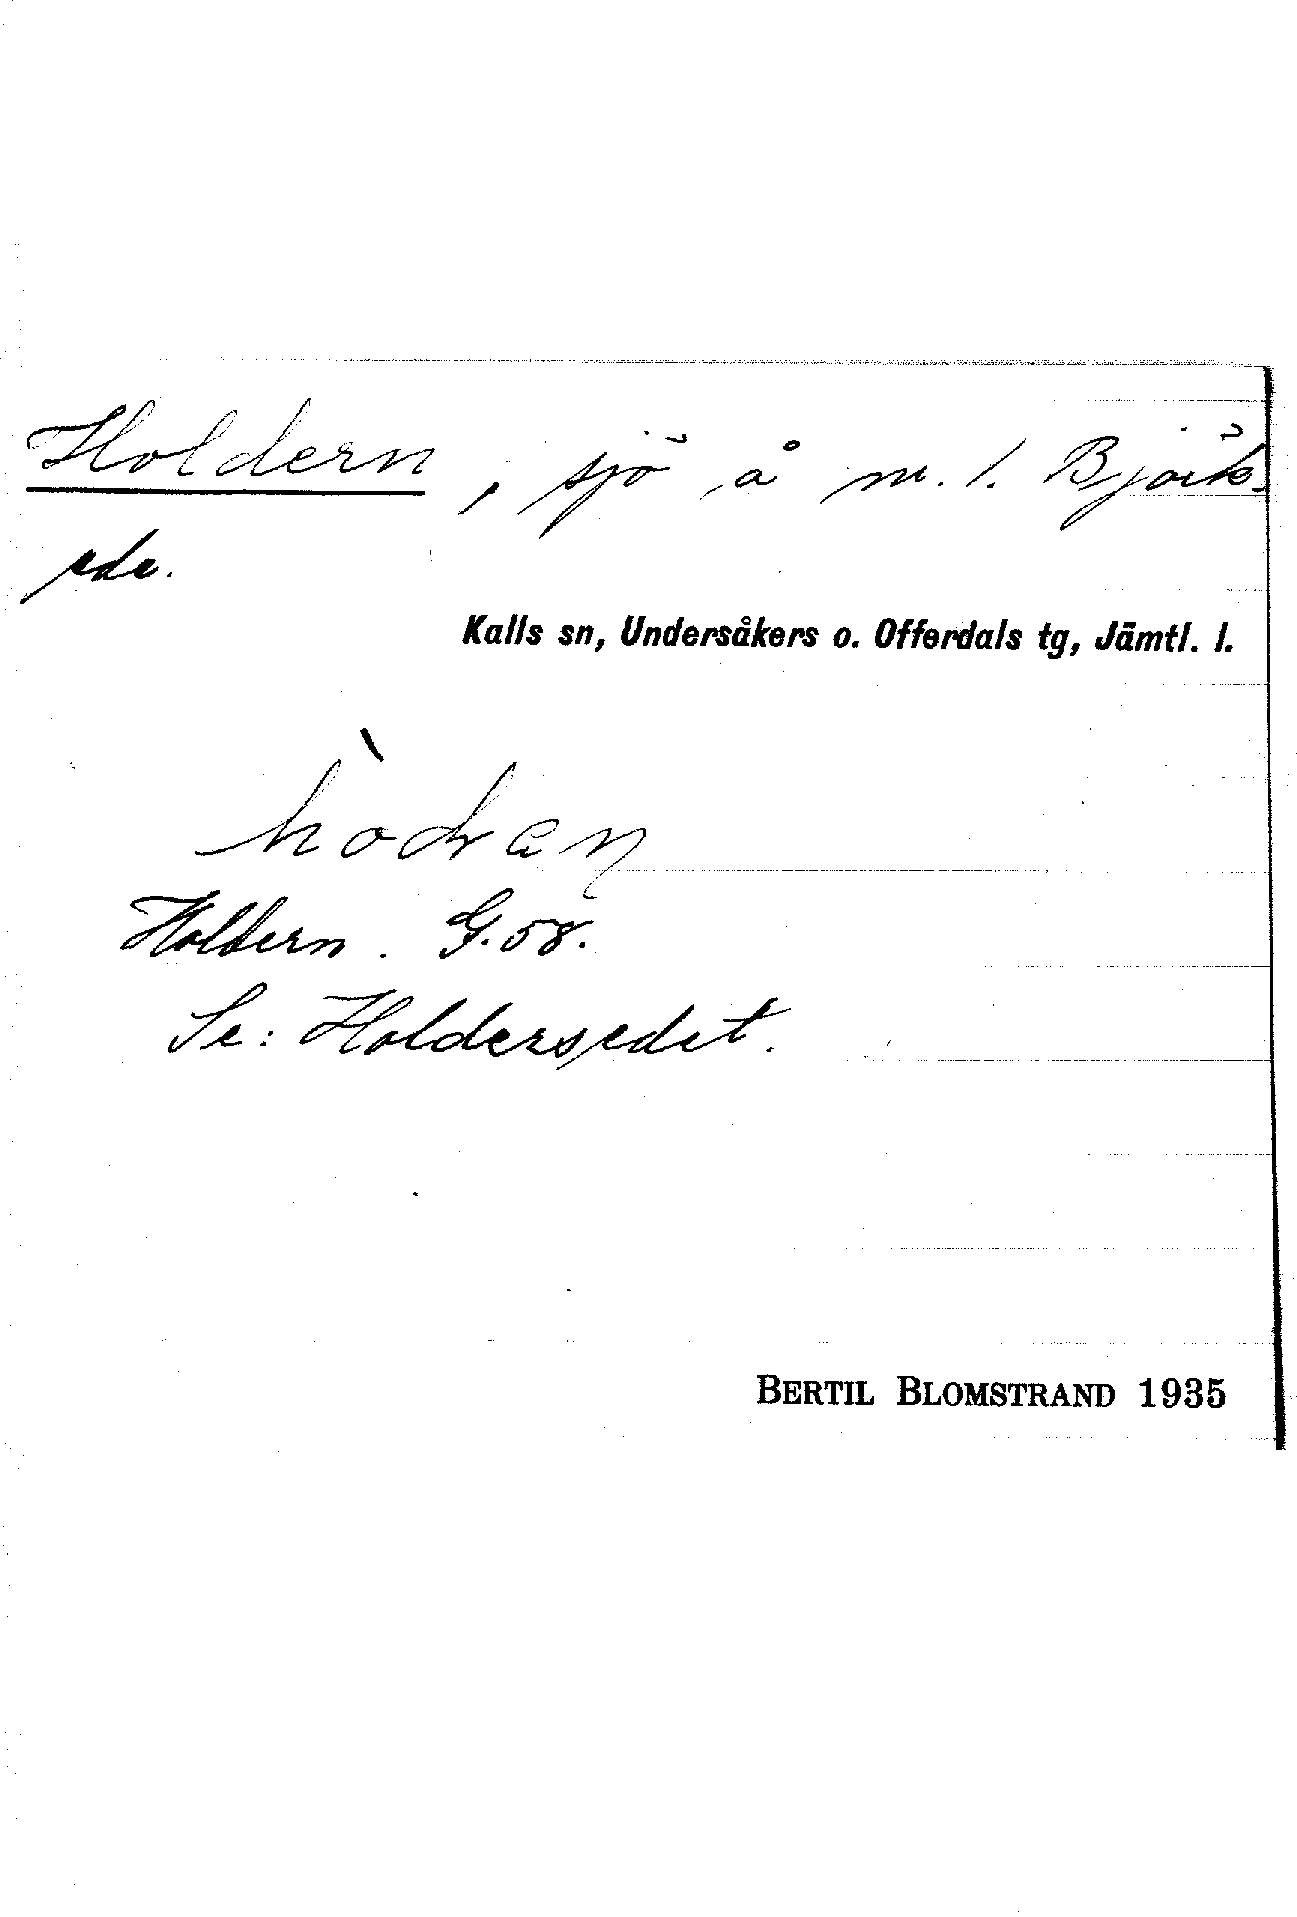 Holdern, sjö å m. l. Björk-
ede.
Kalls sn, Undersåkers o. Offerdals tg, Jämtl. l.
Holdern. G. 58.
Se: Holdersedet.
BERTIL BLOMSTRAND 1935